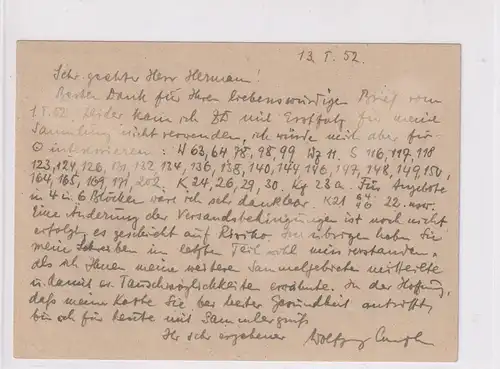 13. I. 52.
Sehr geehrter Herr Hermann!
Besten Dank für Ihren liebenswürdigen Brief vom
1. I. 52. Leider kann ich ZD mit Erstfolg für meine
Sammlung nicht verwenden, ich würde mich aber für
⊙ interessieren: W 63, 64, 78, 98, 99 Wz 11. S 116, 117, 118
123, 124, 126, 131, 132, 134, 136, 138, 140, 144, 146, 147, 148, 149, 150,
164, 165, 169, 171, 202. K 24, 26, 29, 30. Kz 23a. Für Angebote
in 4 u 6 Blöcken wäre ich sehr dankbar. K21 22.
Eine Änderung der Versandbedingungen ist noch nicht
erfolgt, es geschieht auf Risiko. Im übrigen haben Sie
mein Schreiben im letzten Teil wohl miss verstanden,
als ich Ihnen meine weitere Sammelgebiete mitteilte
u. damit Tauschmöglichkeiten erwähnte. In der Hoffnung,
daß meine Karte Sie bei bester Gesundheit antrifft,
bin ich für heute mit Sammlergruß
Ihr sehr ergebener Wolfgang